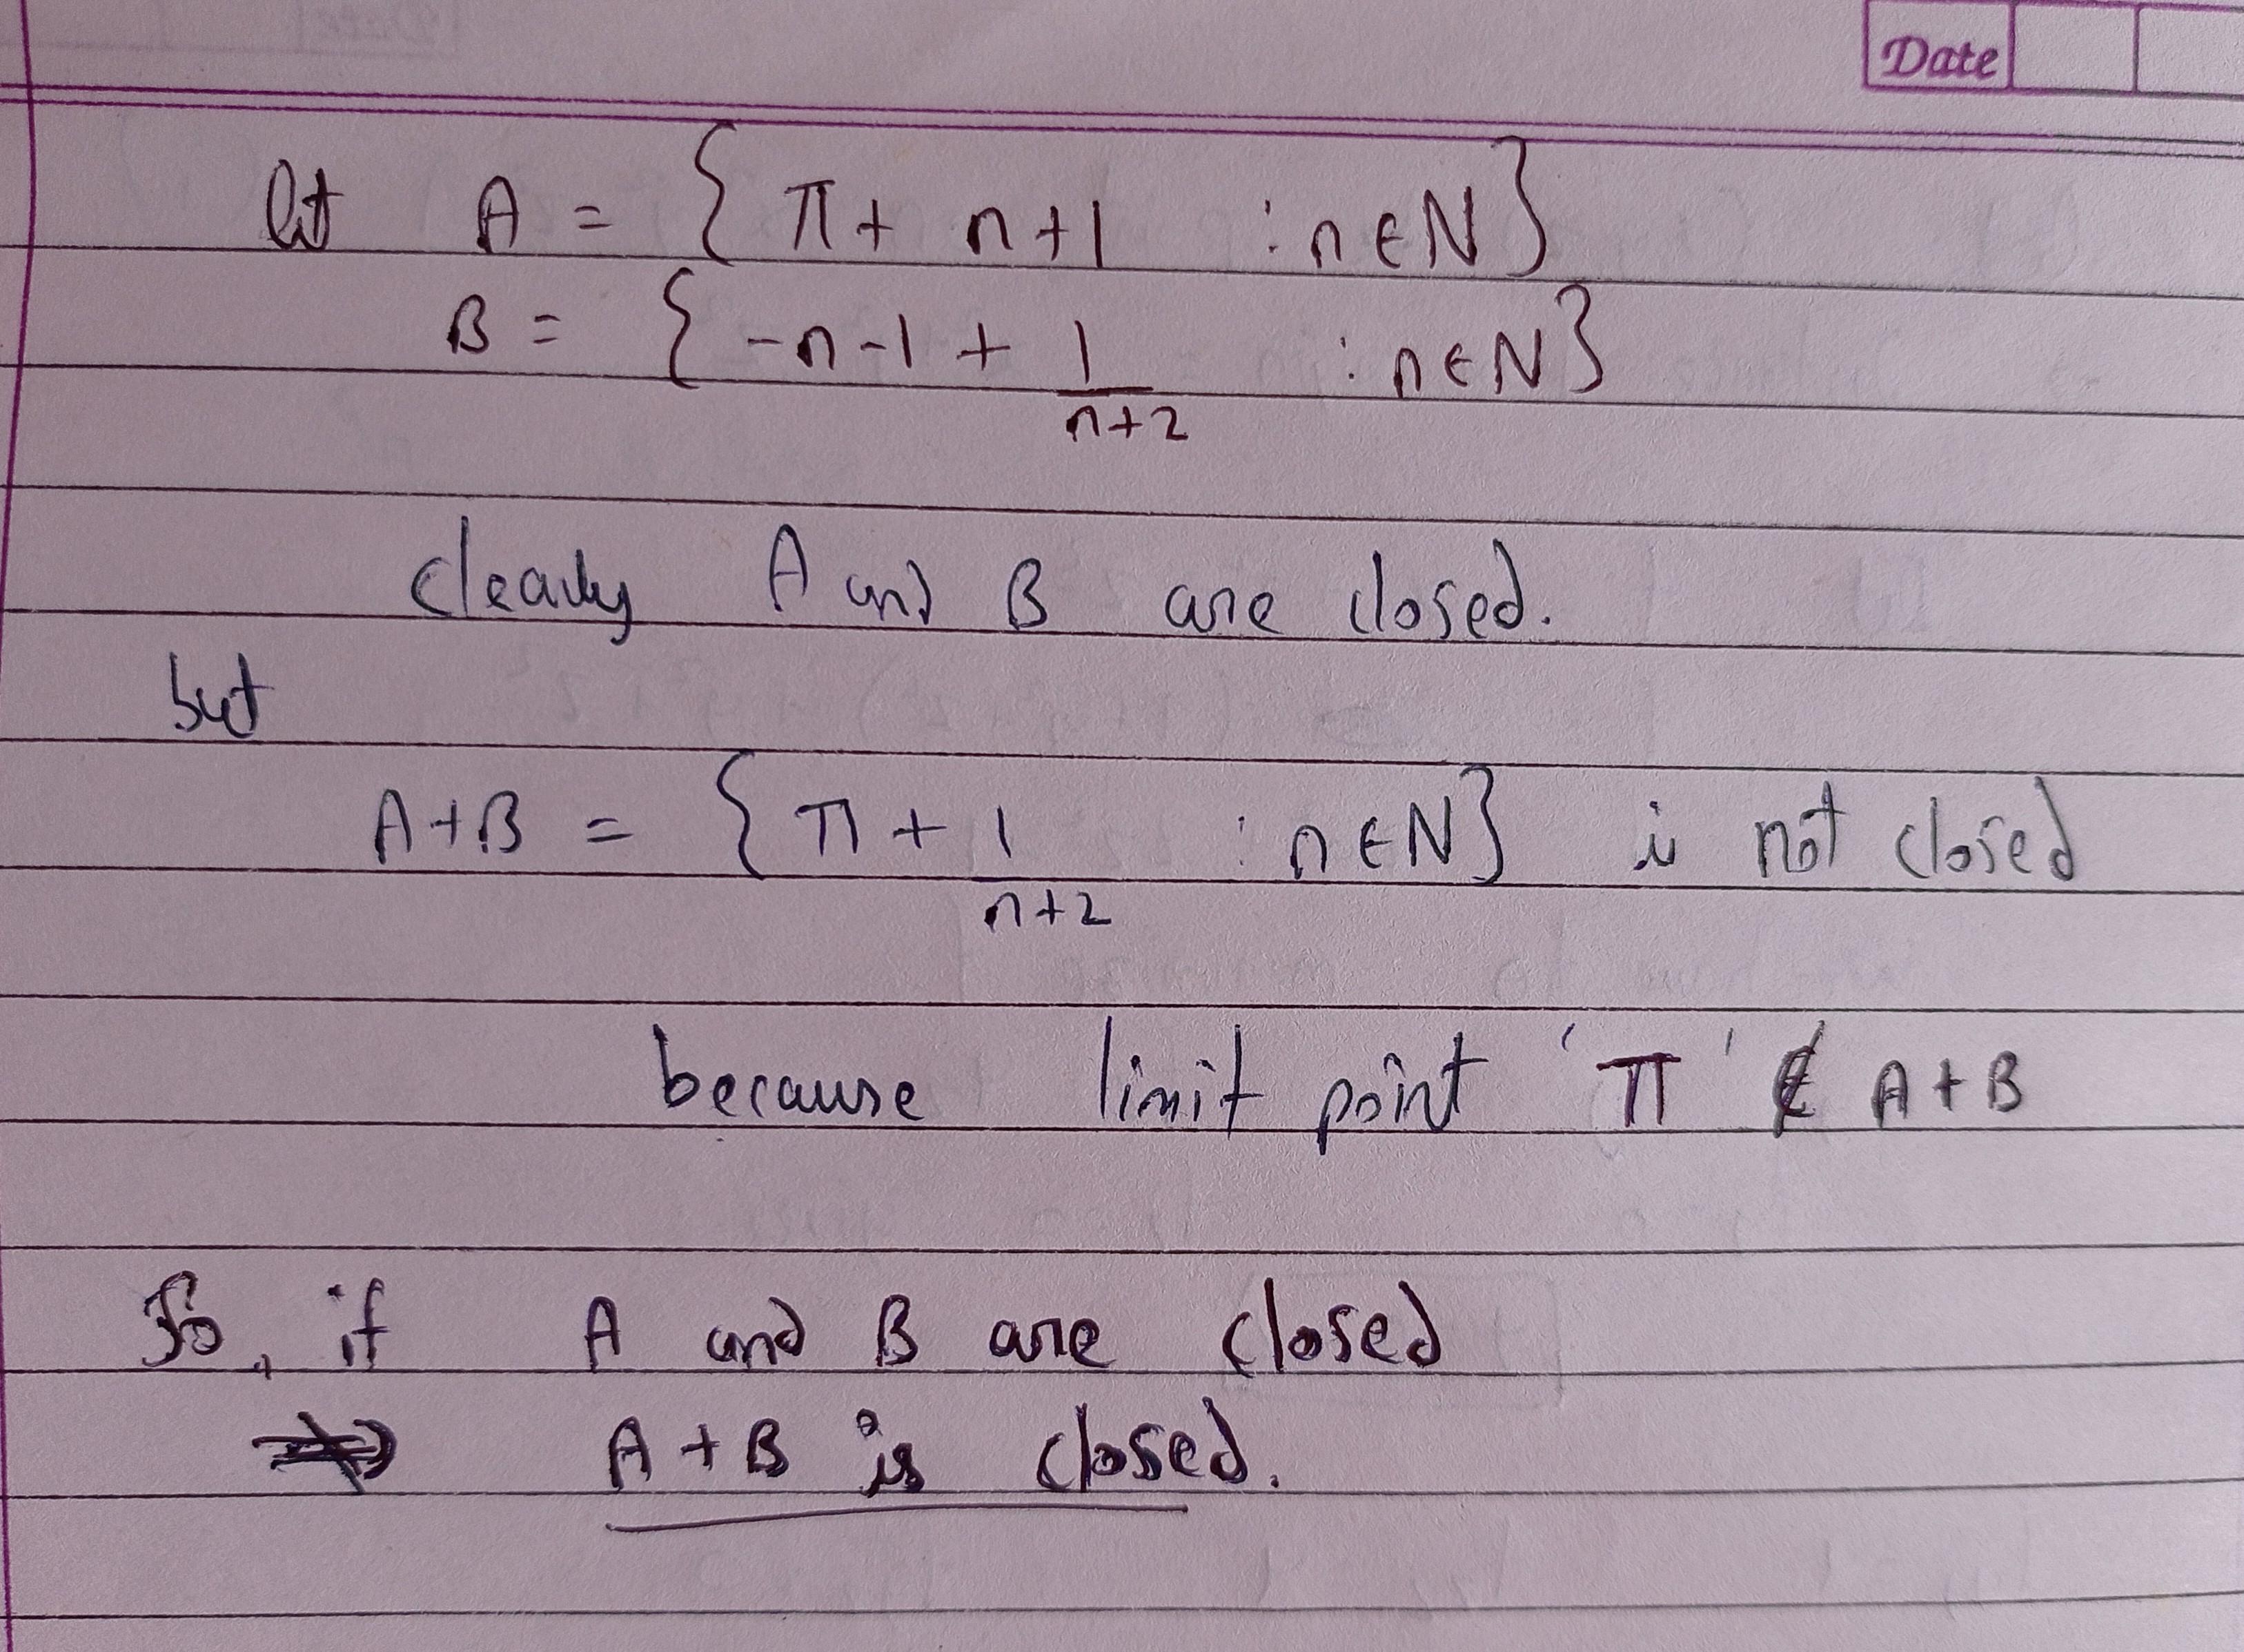 Date
let A = { π + n+1 : n ∈ N }
B = { -n-1 + 1/(n+2) : n ∈ N }
clearly A and B are closed.
but
A+B = { π + 1/(n+2) : n ∈ N } is not closed
because limit point 'π' ∉ A+B
So, if A and B are closed
⇏ A+B is closed.